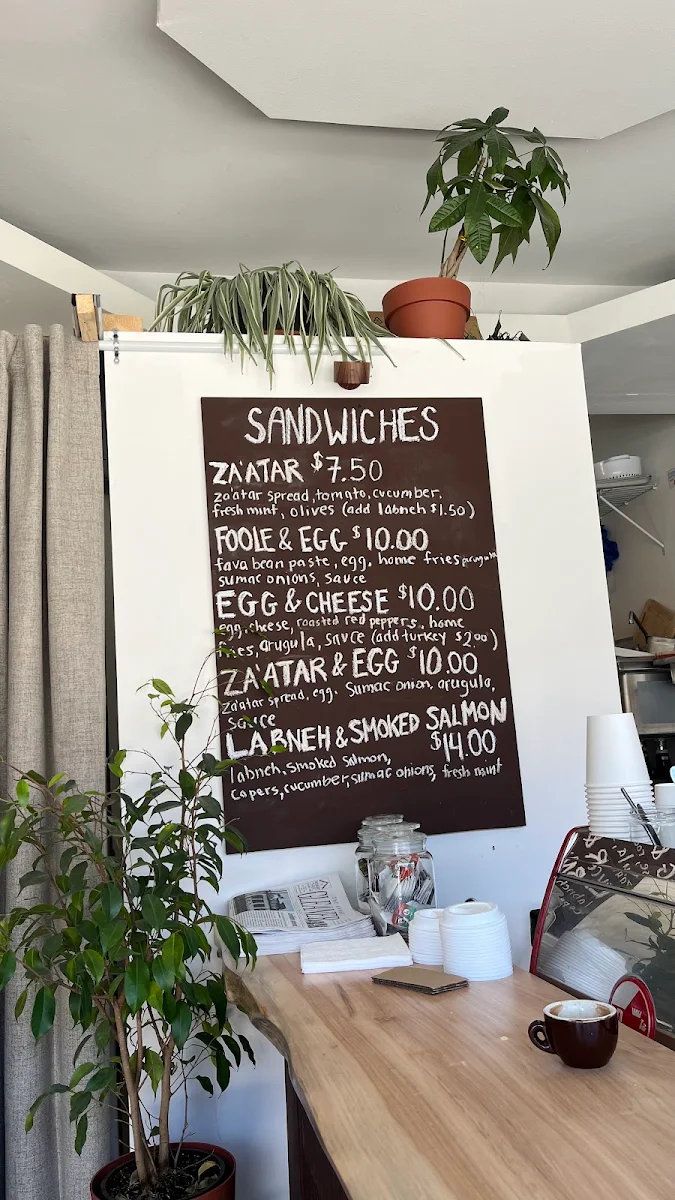 SANDWICHES
ZA'ATAR $7.50
za'atar spread, tomato, cucumber.
fresh mint, olives (add labneh $1.50)
FOOLE & EGG $10.00
fava bean paste, egg. home fries, arugula
sumac onions, sauce
EGG & CHEESE $10.00
egg, cheese, roasted red peppers, home
fries, arugula, sauce (add turkey $2.00)
ZA'ATAR & EGG $10.00
za'atar spread, egg. sumac onion, arugula,
sauce
LABNEH & SMOKED SALMON
$14.00
labneh, smoked salmon,
capers, cucumber, sumac onions, fresh mint